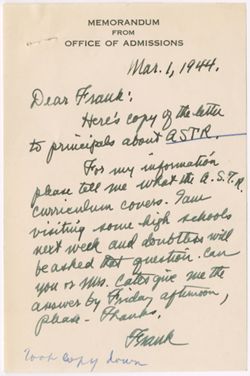 MEMORANDUM
FROM
OFFICE OF ADMISSIONS
Mar. 1, 1944.
Dear Frank:
Here's copy of the letter
to principals about ASTR.
For my information
please tell me what the A.S.T.R.
curriculum covers. I am
visiting some high schools
next week and doubtless will
be asked that question. Can
you or Mrs. Cates give me the
answer by Friday afternoon,
please - Thanks.
Frank
took copy down